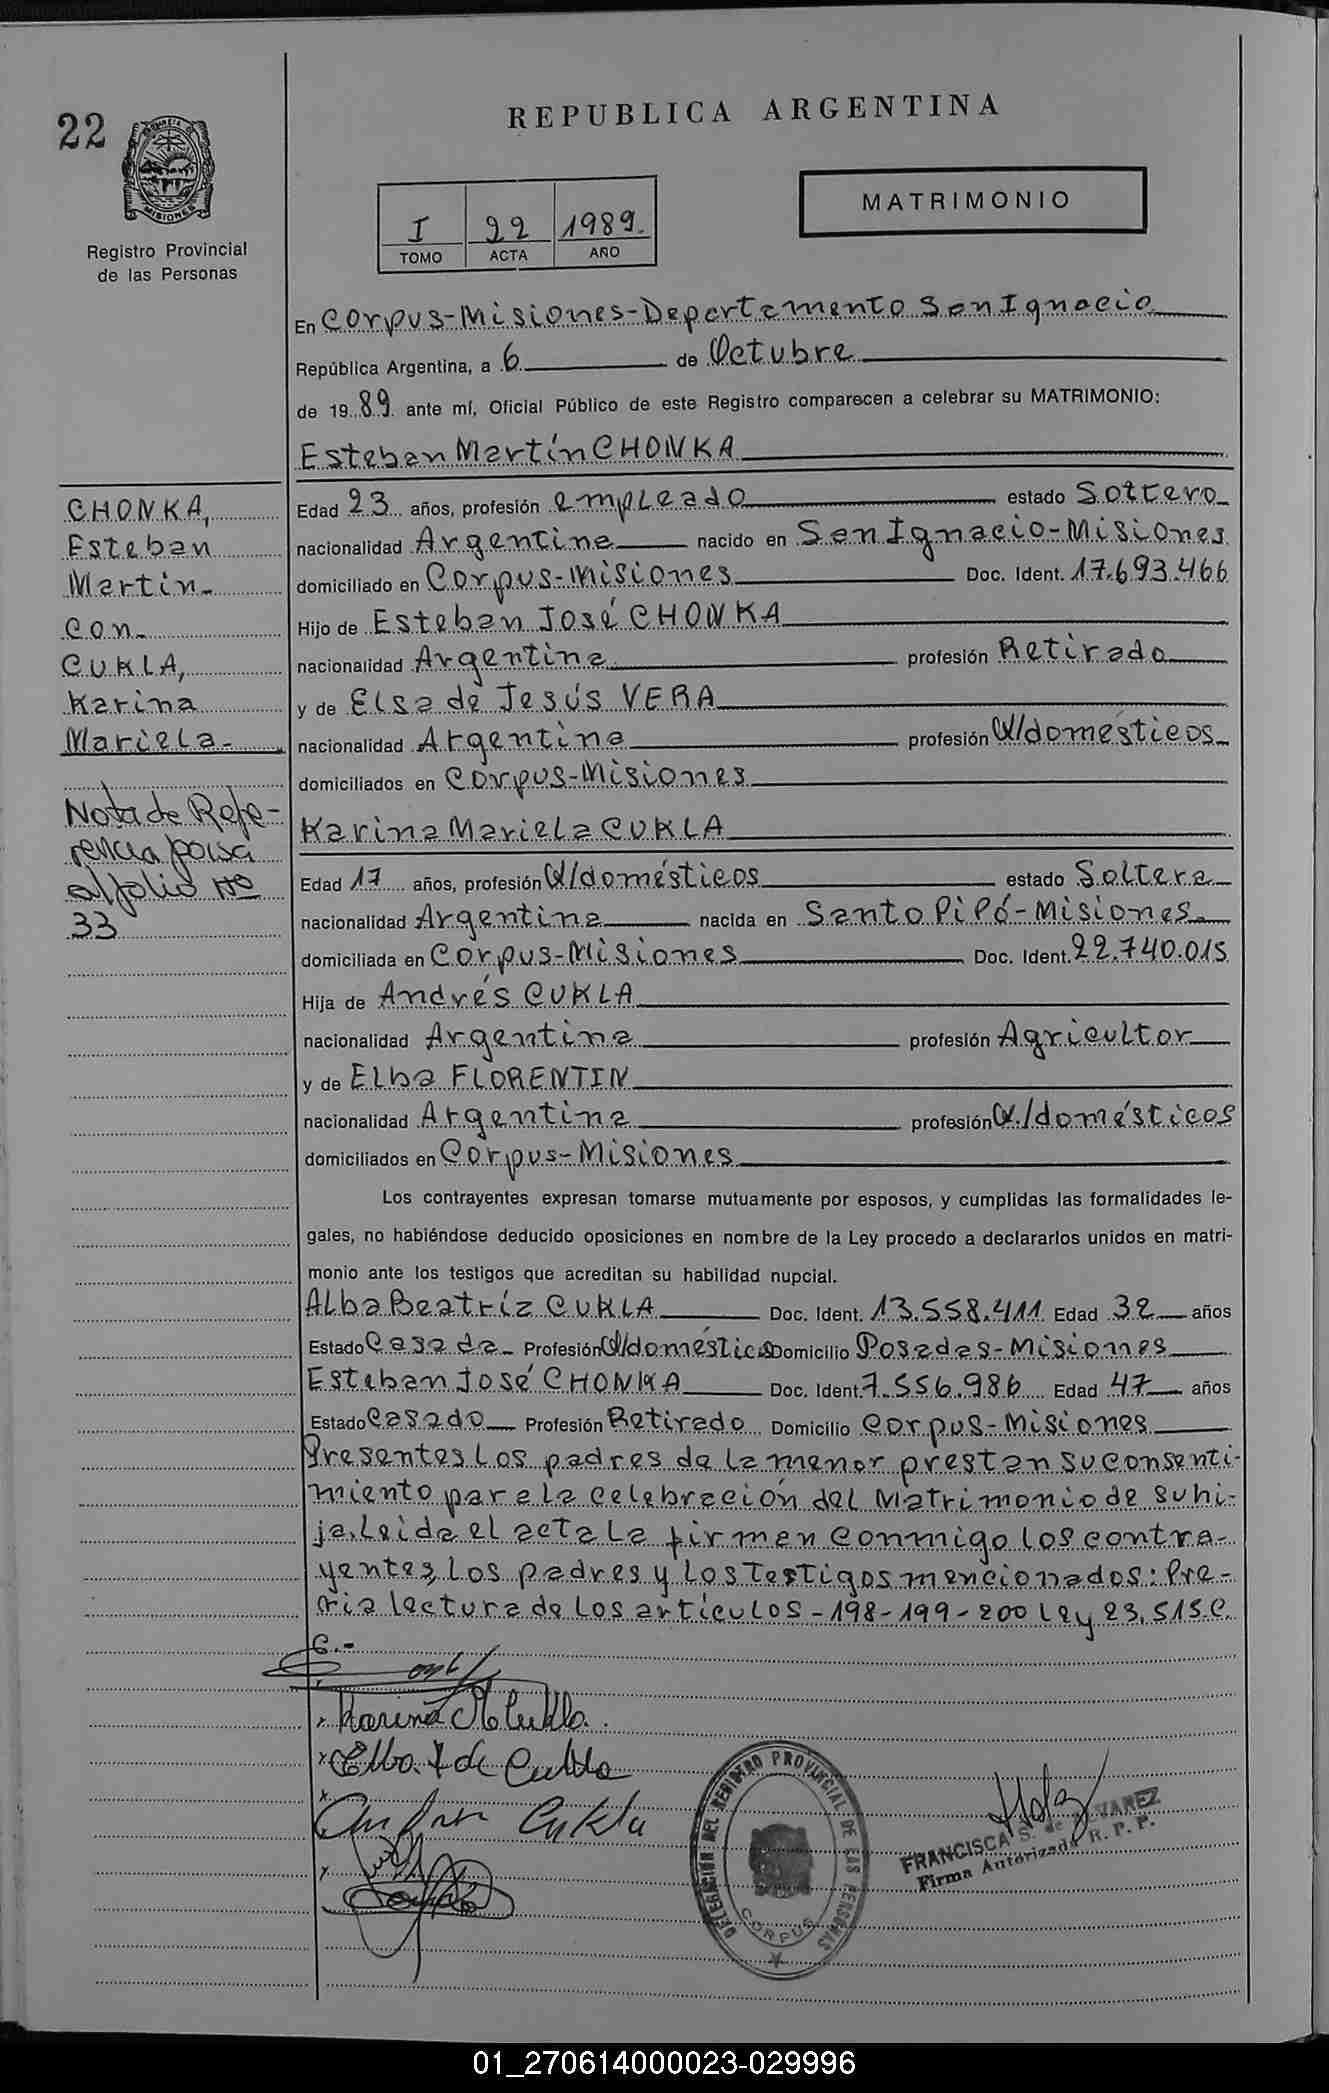 22
REPUBLICA ARGENTINA
MISIONES
Registro Provincial
de las Personas
I 22 1989.
TOMO ACTA AÑO
MATRIMONIO
En Corpus-Misiones-Departamento San Ignacio
República Argentina, a 6 de Octubre
de 19 89 ante mí, Oficial Público de este Registro comparecen a celebrar su MATRIMONIO:
Esteban Martín CHONKA
CHONKA,
Esteban
Martín-
con-
CUKLA,
Karina
Mariela-
Nota de Refe-
rencia pasa
al folio Nº
33
Edad 23 años, profesión empleado estado Soltero
nacionalidad Argentina nacido en San Ignacio-Misiones
domiciliado en Corpus-Misiones Doc. Ident. 17.693.466
Hijo de Esteban José CHONKA
nacionalidad Argentina profesión Retirado
y de Elsa de Jesús VERA
nacionalidad Argentina profesión Q/domésticos
domiciliados en Corpus-Misiones
Karina Mariela CUKLA
Edad 17 años, profesión Q/domésticos estado Soltera
nacionalidad Argentina nacida en Santo Pipó-Misiones
domiciliada en Corpus-Misiones Doc. Ident. 22.740.015
Hija de Andrés CUKLA
nacionalidad Argentina profesión Agricultor
y de Elba FLORENTIN
nacionalidad Argentina profesión Q./domésticos
domiciliados en Corpus-Misiones
Los contrayentes expresan tomarse mutuamente por esposos, y cumplidas las formalidades le-
gales, no habiéndose deducido oposiciones en nombre de la Ley procedo a declararlos unidos en matri-
monio ante los testigos que acreditan su habilidad nupcial.
Alba Beatríz CUKLA Doc. Ident. 13.558.411 Edad 32 años
Estado Casada Profesión Q/domésticos Domicilio Posadas-Misiones
Esteban José CHONKA Doc. Ident. 7.556.986 Edad 47 años
Estado Casado Profesión Retirado Domicilio Corpus-Misiones
Presentes los padres de la menor prestan su consenti-
miento para la celebración del Matrimonio de su hi-
ja. Leida el acta la firman conmigo los contra-
yentes, los padres y los testigos mencionados: Pre-
via lectura de los artículos -198-199-200 Ley 23.515.C.
C.-
Karina M Cukla.
Elba F de Cukla
Andres Cukla
DELEGACION DEL REGISTRO PROVINCIAL DE LAS PERSONAS
CORPUS
FRANCISCA S. de ALVAREZ
Firma Autorizada R. P. P.
01_270614000023-029996